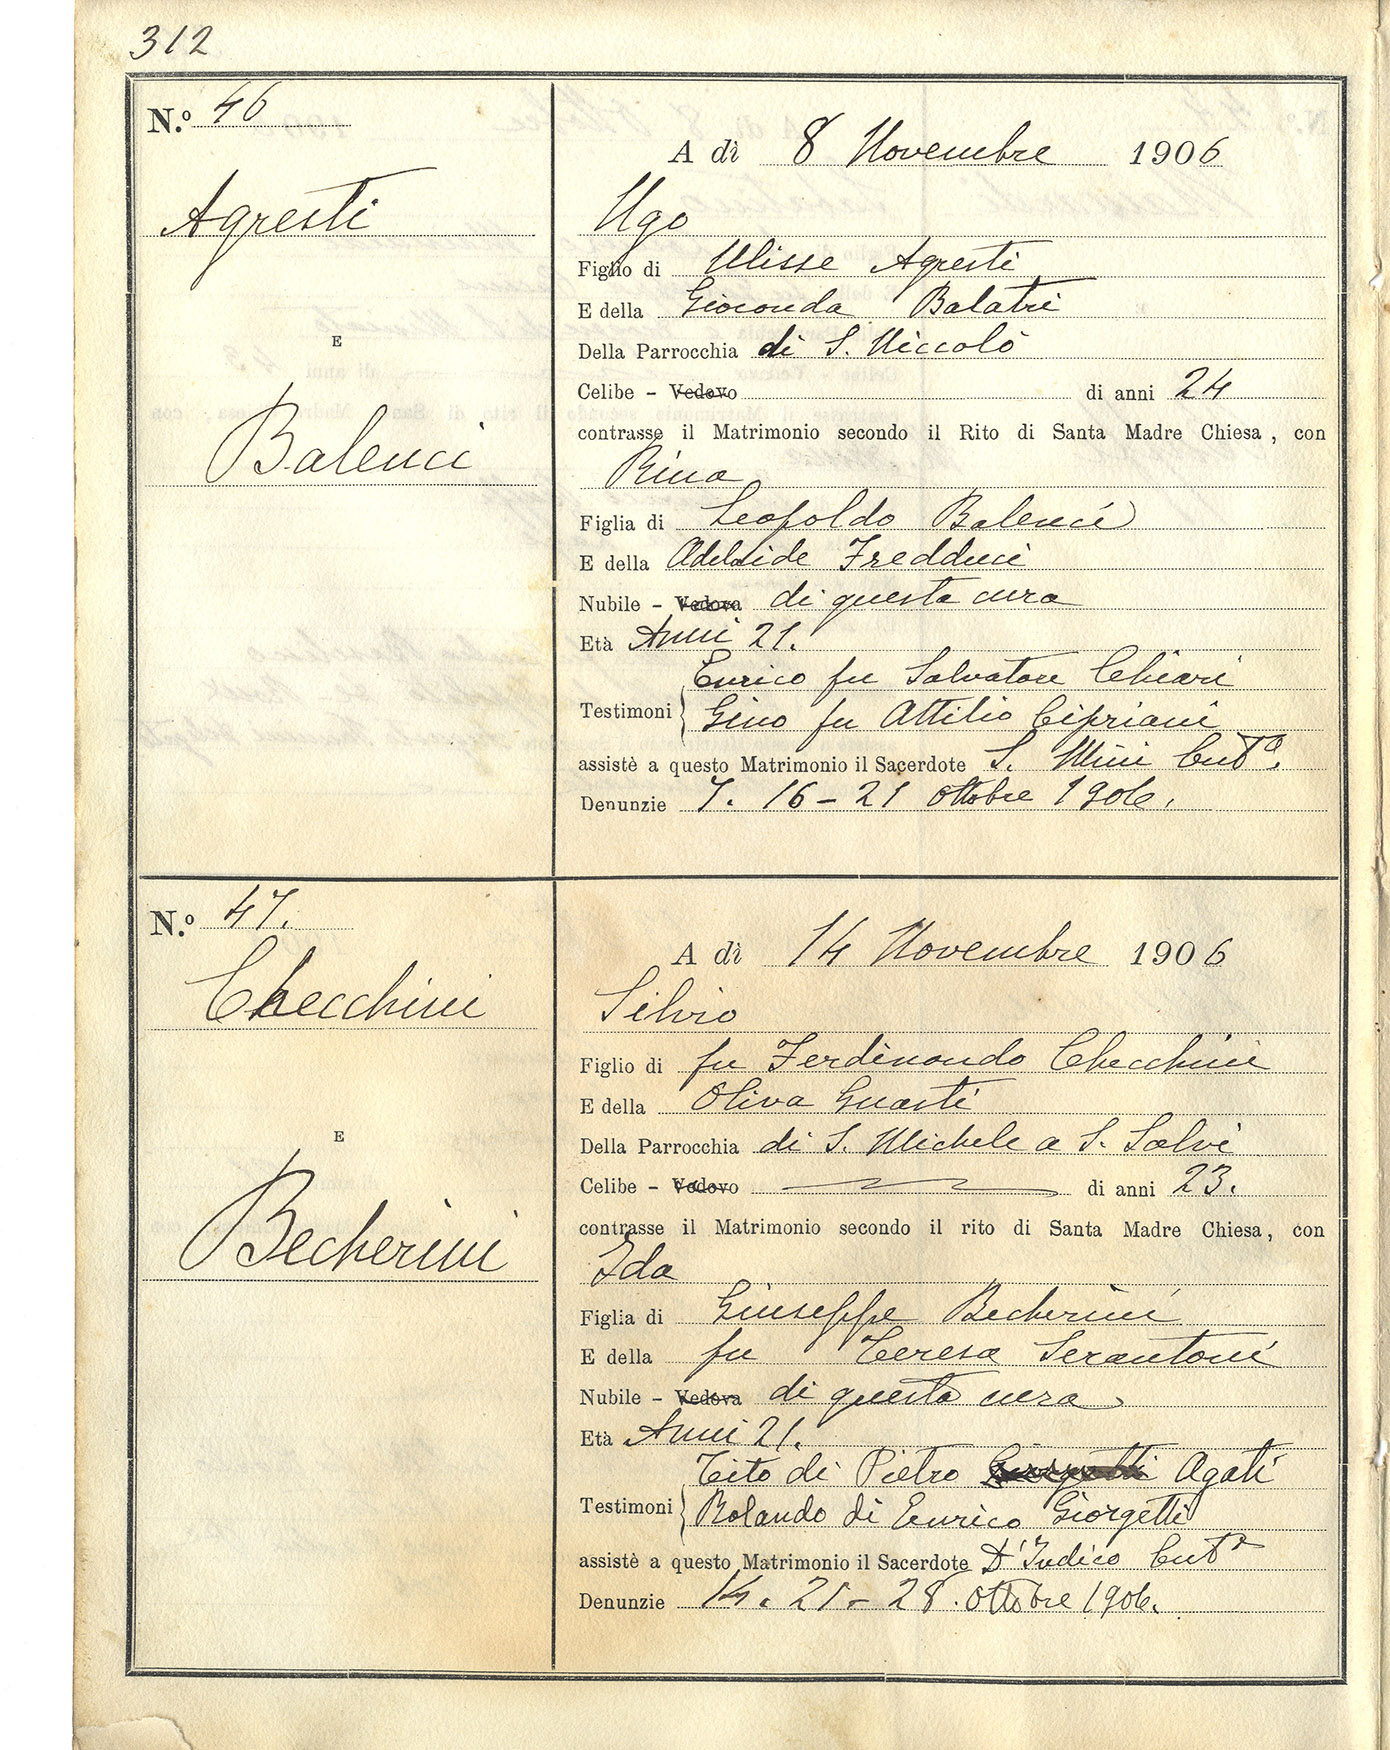 312
N.º 46
A dì 8 Novembre 1906
Agresti
Ugo
Figlio di Ulisse Agresti
E della Gioconda Balatri
E
Della Parrocchia di S. Niccolò
Celibe - Vedovo di anni 24
contrasse il Matrimonio secondo il Rito di Santa Madre Chiesa, con
Balenci
Rina
Figlia di Leopoldo Balenci
E della Adelaide Fredduci
Nubile - Vedova di questa cura
Età Anni 21.
Enrico fu Salvatore Chiari
Testimoni Gino fu Attilio Cipriani
assistè a questo Matrimonio il Sacerdote S. Mini
Denunzie 7. 16 - 21 ottobre 1906.
N.º 47.
A dì 14 Novembre 1906
Checchini
Silvio
Figlio di fu Ferdinando Checchini
E della Oliva Guasti
E
Della Parrocchia di S. Michele a S. Salvi
Celibe - Vedovo di anni 23.
contrasse il Matrimonio secondo il rito di Santa Madre Chiesa, con
Becherini
Ida
Figlia di Giuseppe Becherini
E della fu Teresa Serantoni
Nubile - Vedova di questa cura
Età Anni 21.
Tito di Pietro Agati
Testimoni Rolando di Enrico Giorgetti
assistè a questo Matrimonio il Sacerdote D'Indico
Denunzie 14. 21 - 28. ottobre 1906.